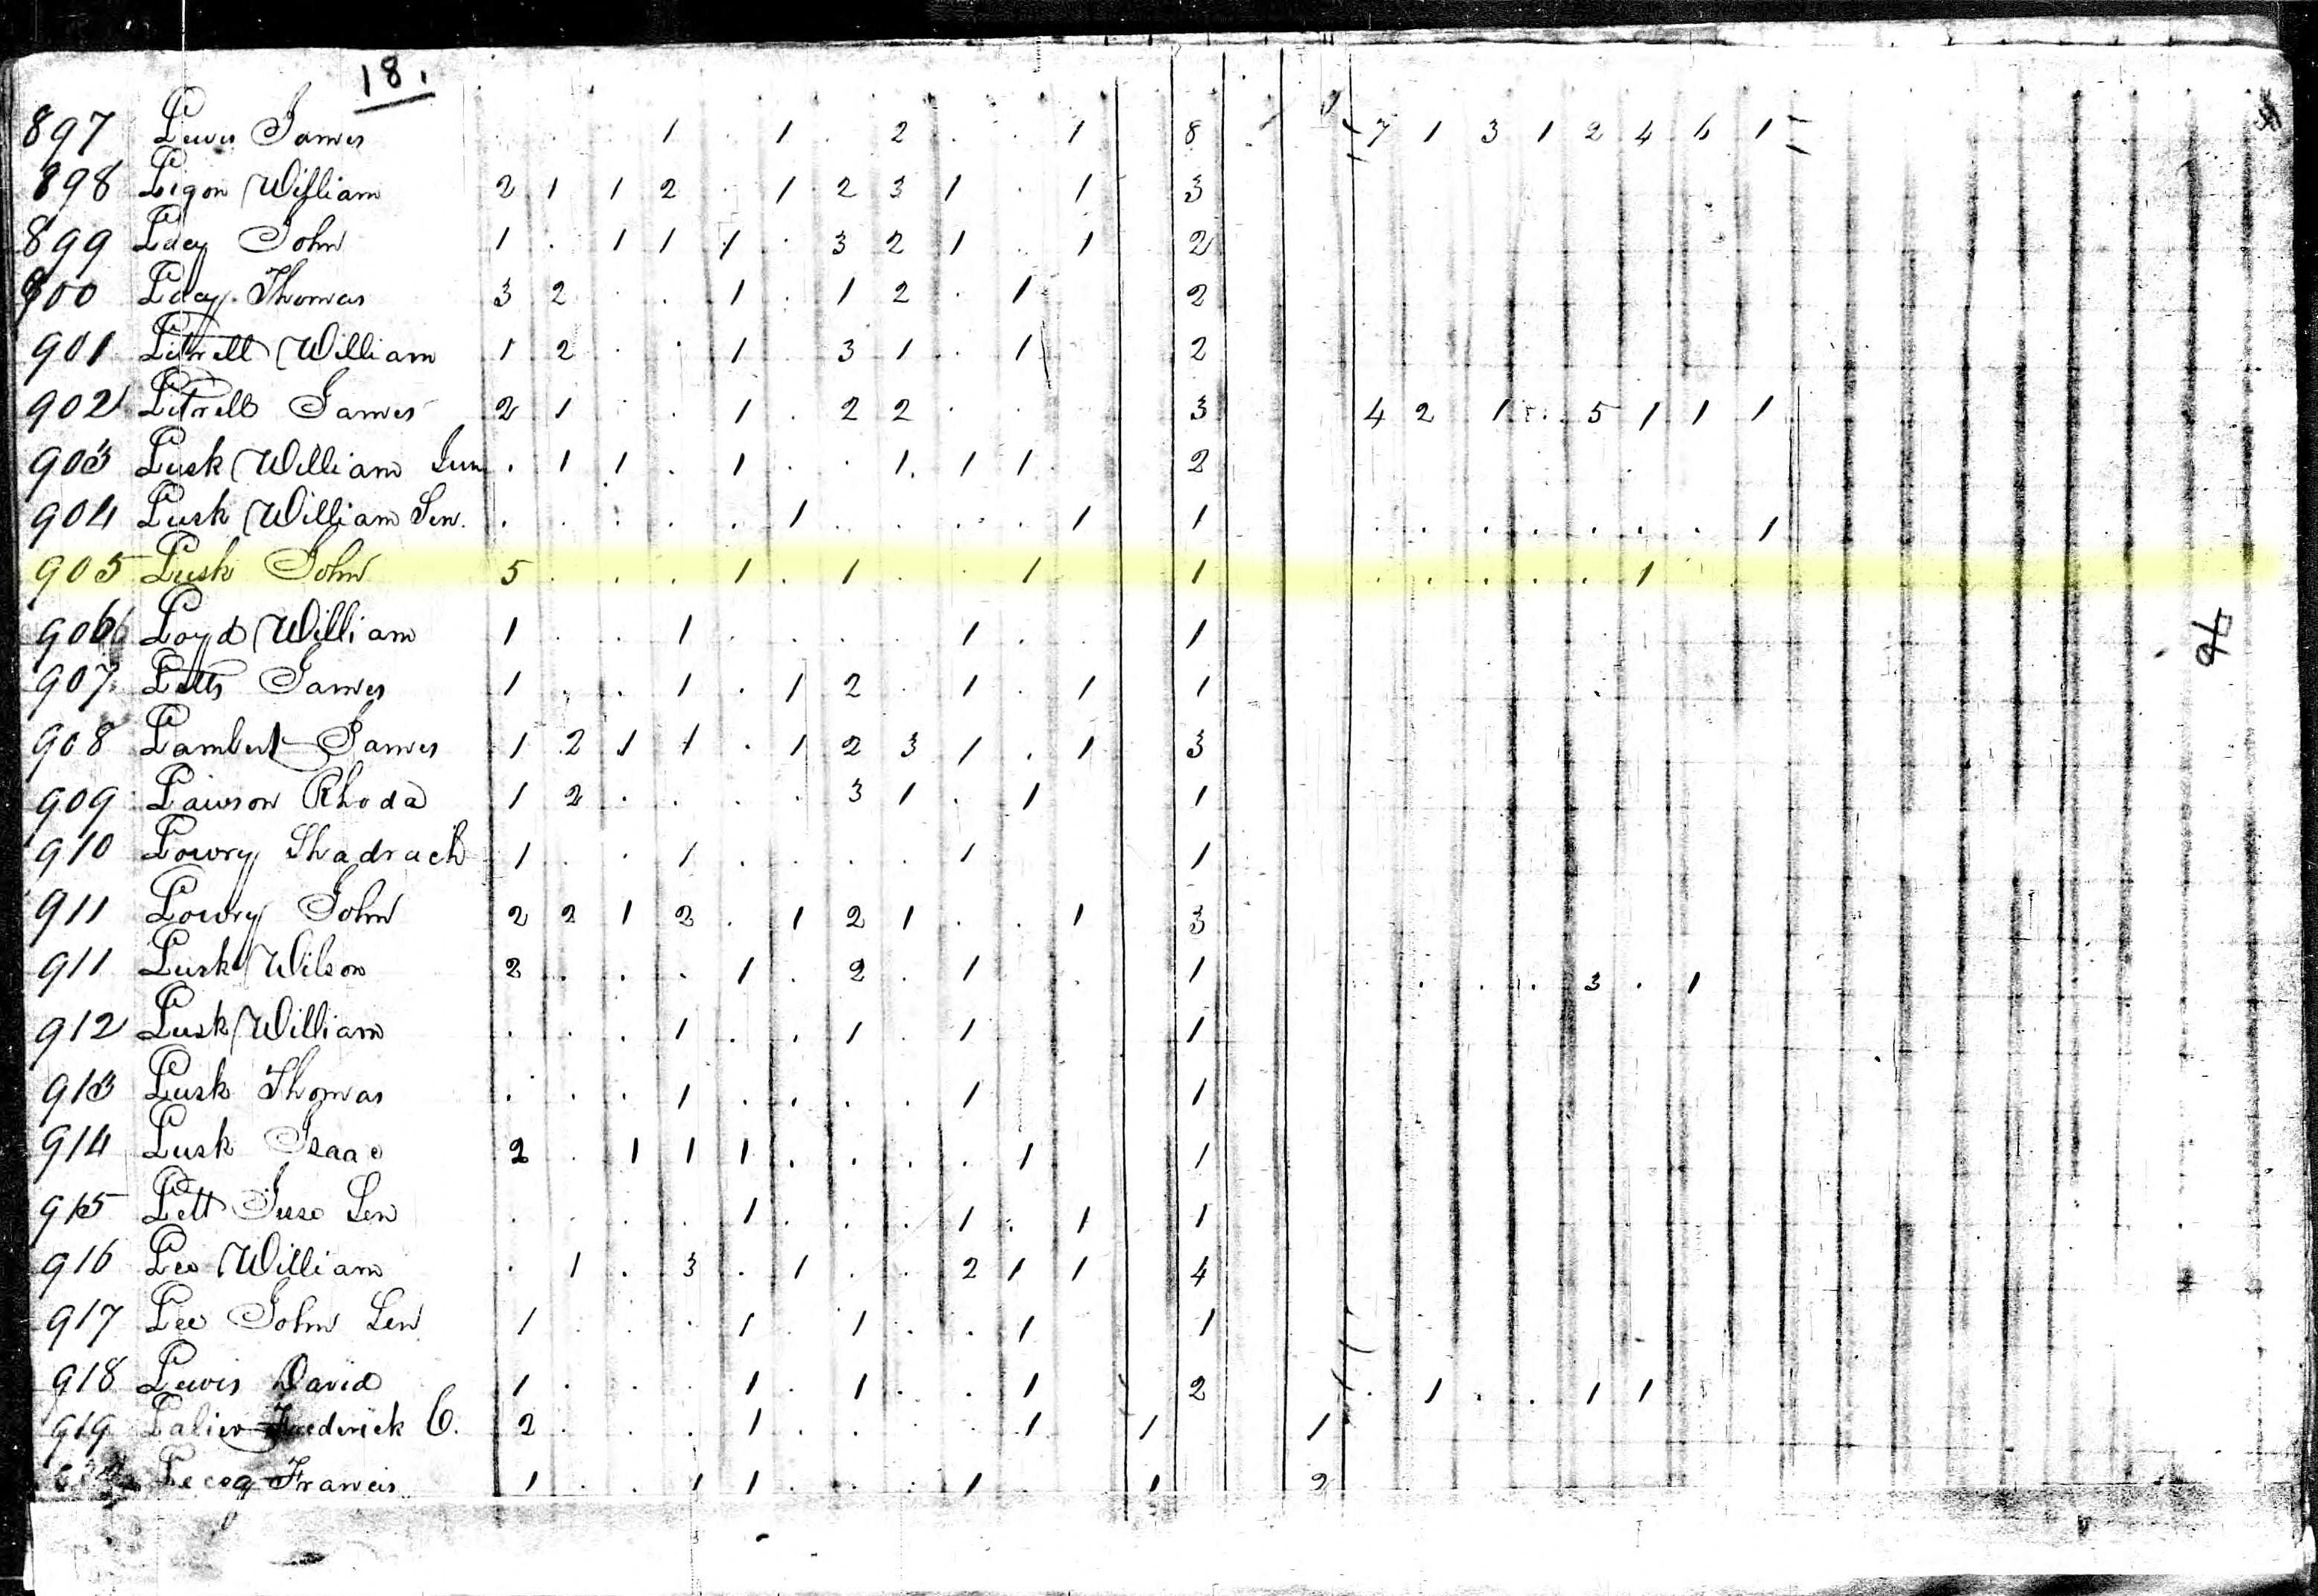 18.
897 Lewis James . . . 1 . 1 . 2 . . 1 8 7 1 3 1 2 4 6 1
898 Ligon William 2 1 1 2 . 1 2 3 1 . 1 3
899 Lacy John 1 . 1 1 1 . 3 2 1 . 1 2
900 Lacy Thomas 3 2 . . 1 . 1 2 . 1 2
901 Litrell William 1 2 . . 1 . 3 1 . 1 2
902 Litrell James 2 1 . . 1 . 2 2 . . . 3 4 2 1 . 5 1 1 1
903 Lusk William Jun . 1 1 . 1 . . 1 1 1 2
904 Lusk William Sen. . . . . . 1 . . . . 1 1 . . . . . . . 1
905 Lusk John 5 . . . 1 . 1 . . 1 1 . . . . . 1
906 Loyd William 1 . . 1 . . . . 1 . . 1
907 Letts James 1 . . 1 . 1 2 . 1 . 1 1
908 Lambert James 1 2 1 1 . 1 2 3 1 . 1 3
909 Lawson Rhoda 1 2 . . . . 3 1 . 1 1
910 Lowry Shadrach 1 . . 1 . . . . 1 1
911 Lowry John 2 2 1 2 . 1 2 1 . . 1 3
911 Lusk Wilson 2 . . . 1 . 2 . 1 . 1 . . . 3 . 1
912 Lusk William . . . 1 . . 1 . 1 1
913 Lusk Thomas . . . 1 . . . . 1 1
914 Lusk Isaac 2 . 1 1 1 . . . . 1 1
915 Lett Sen . . . . 1 . . . 1 . 1 1
916 Lee William . 1 . 3 . 1 . . 2 1 1 4
917 Lee John Sen 1 . . . 1 . 1 . . 1 1
918 Lewis David 1 . . . 1 . 1 . . 1 2 . 1 . . 1 1
919 Frederick C. 2 . . . 1 . . . . 1 1 1
Francis 1 . . 1 1 . . . 1 . 1 2